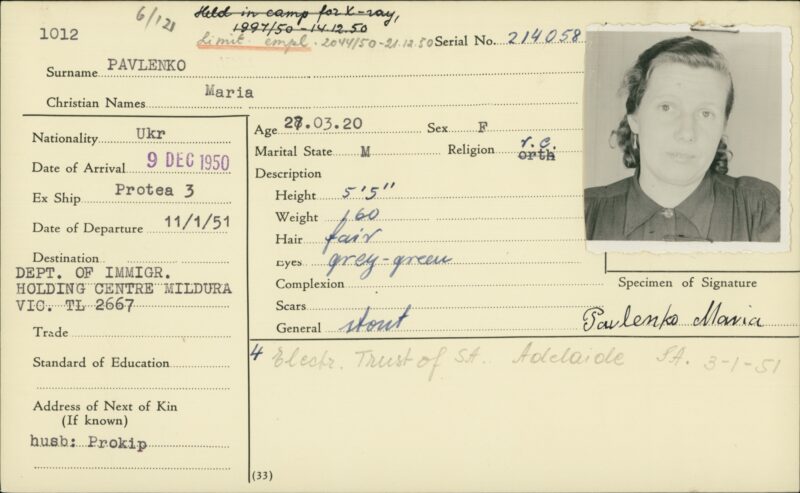 1012
6/121
Held in camp for X-ray,
1997/50 - 14.12.50
Limit. empl. - 2044/50 - 21.12.50
Serial No. 214058
Surname PAVLENKO
Christian Names Maria
Nationality Ukr
Date of Arrival 9 DEC 1950
Ex Ship Protea 3
Date of Departure 11/1/51
Destination
DEPT. OF IMMIGR.
HOLDING CENTRE MILDURA
VIC. TL 2667
Trade
Standard of Education
Address of Next of Kin
(If known)
husb: Prokip
Age 27.03.20 Sex F
Marital State M Religion r.c.
orth
Description
Height 5'5"
Weight 160
Hair fair
Eyes grey-green
Complexion
Scars
General stout
Specimen of Signature
Pavlenko Maria
4 Electr. Trust of SA. Adelaide SA. 3-1-51
(33)